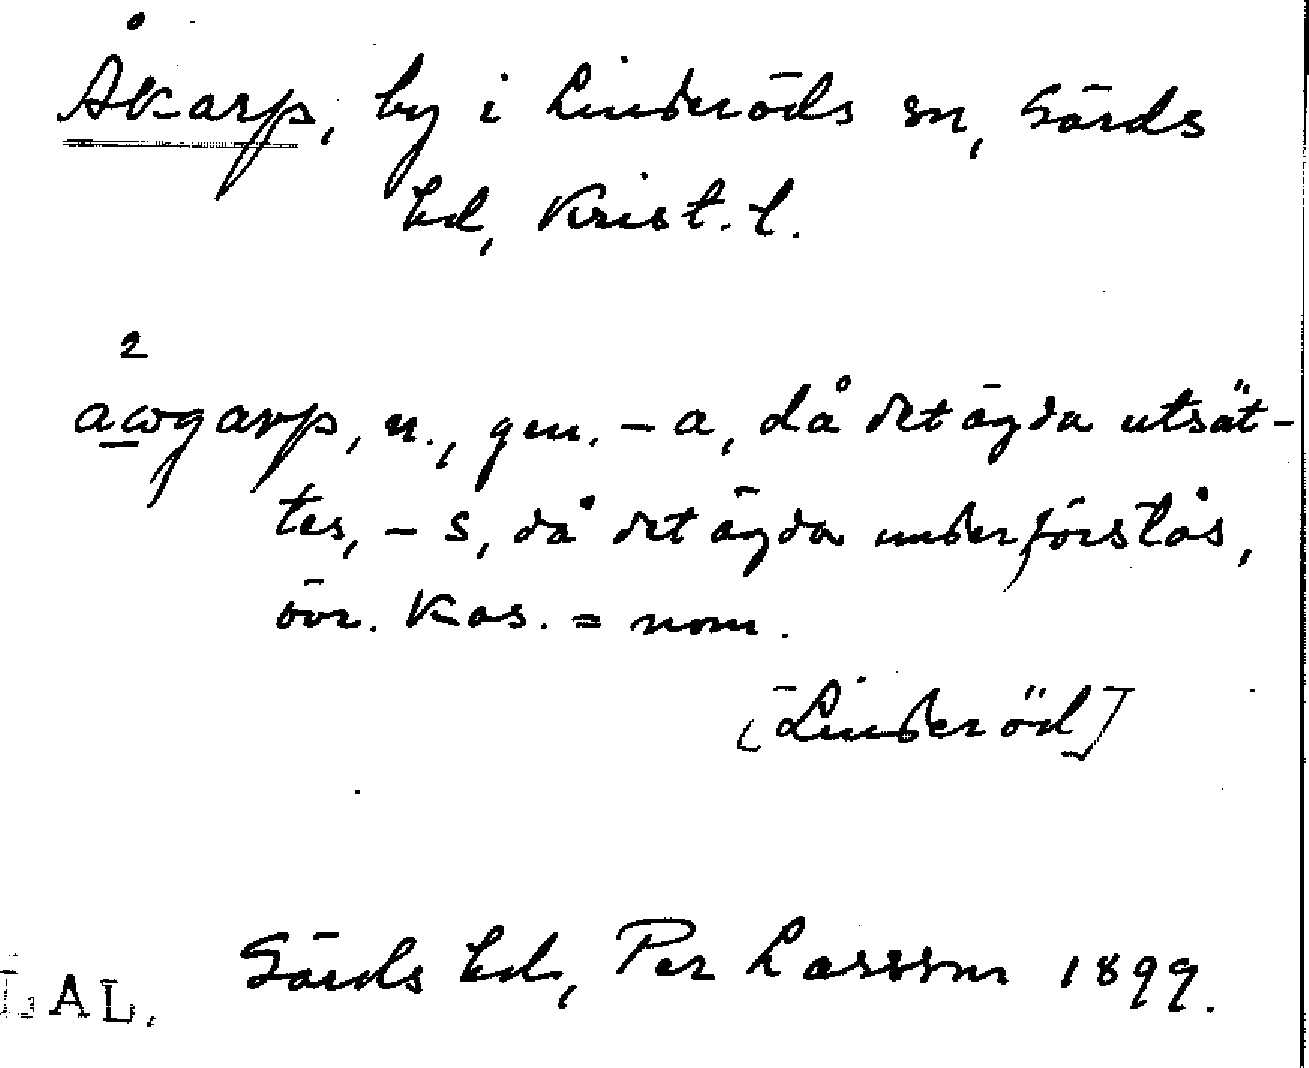 Åkarp, by i Linderöds sn, Gärds
hd, Krist. l.
2
awgarp, n., gen. -a, då det ägda utsät-
tes, -s, då det ägda underförstås,
övr. kas. = nom.
[Linderöd]
Gärds hd, Per Larsson 1899.
LAL.